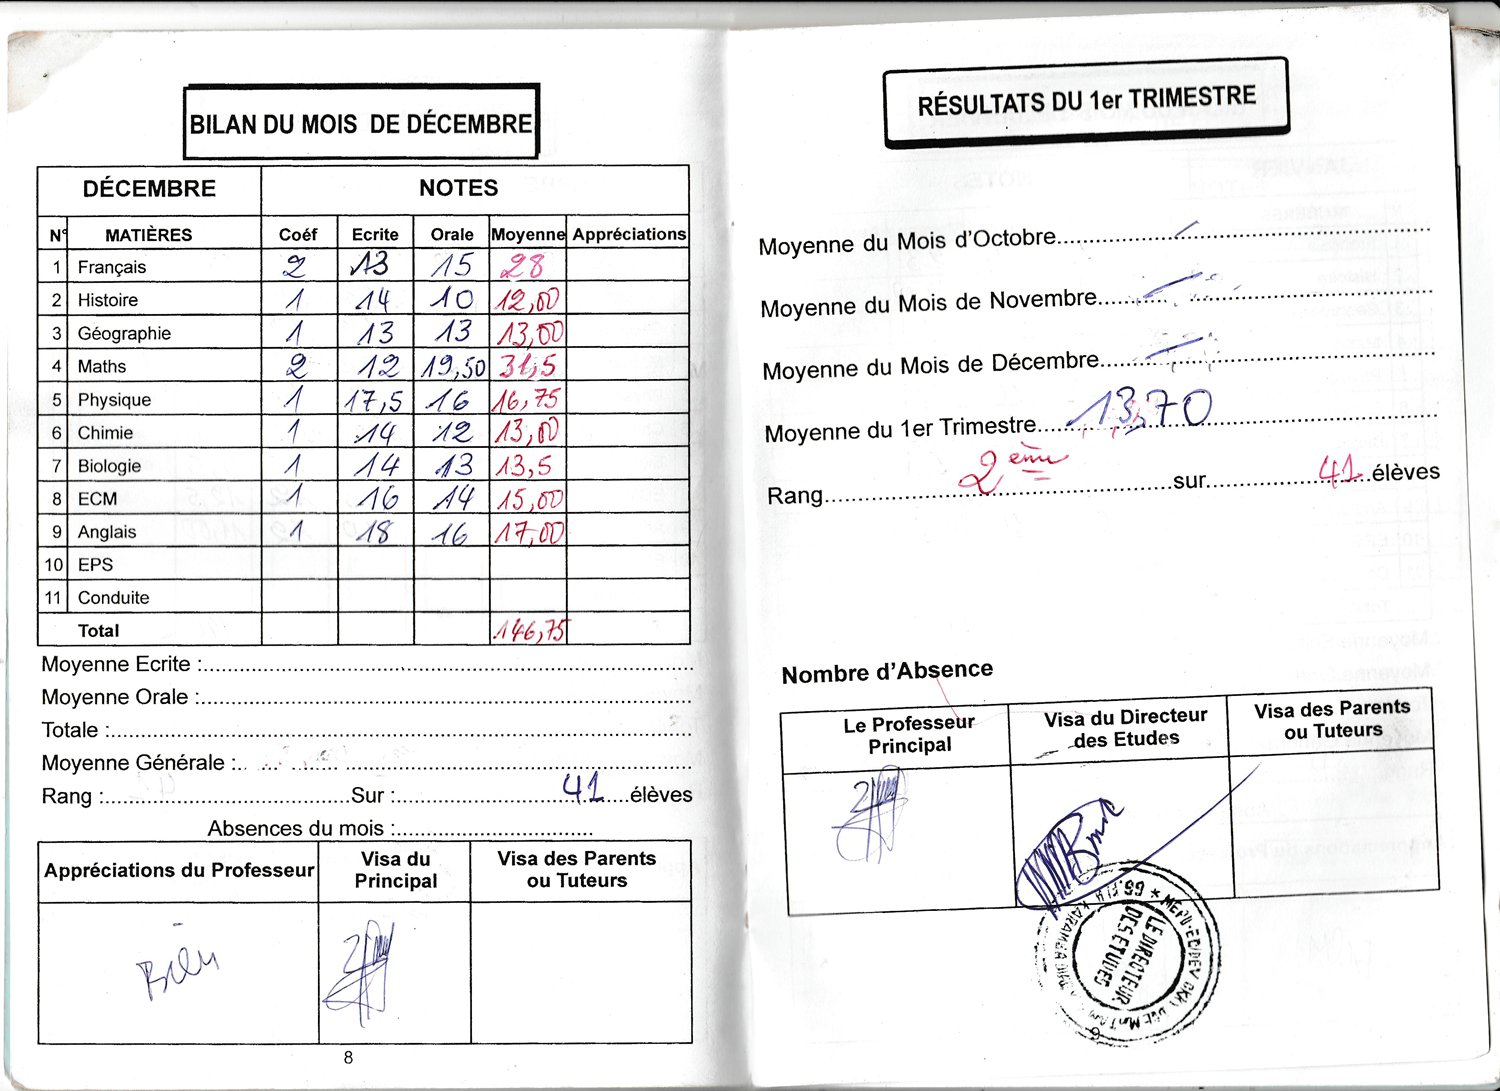 BILAN DU MOIS DE DÉCEMBRE
DÉCEMBRE NOTES
N° MATIÈRES Coéf Ecrite Orale Moyenne Appréciations
1 Français 2 13 15 28
2 Histoire 1 14 10 12,00
3 Géographie 1 13 13 13,00
4 Maths 2 12 19,50 31,5
5 Physique 1 17,5 16 16,75
6 Chimie 1 14 12 13,00
7 Biologie 1 14 13 13,5
8 ECM 1 16 14 15,00
9 Anglais 1 18 16 17,00
10 EPS
11 Conduite
Total 146,75
Moyenne Ecrite :
Moyenne Orale :
Totale :
Moyenne Générale :
Rang : Sur : 41 élèves
Absences du mois :
Appréciations du Professeur Visa du Principal Visa des Parents ou Tuteurs
Bien
8
RÉSULTATS DU 1er TRIMESTRE
Moyenne du Mois d'Octobre
Moyenne du Mois de Novembre
Moyenne du Mois de Décembre
Moyenne du 1er Trimestre 13,70
Rang 2ème sur 41 élèves
Nombre d'Absence
Le Professeur Principal Visa du Directeur des Etudes Visa des Parents ou Tuteurs
LE DIRECTEUR
DES ETUDES